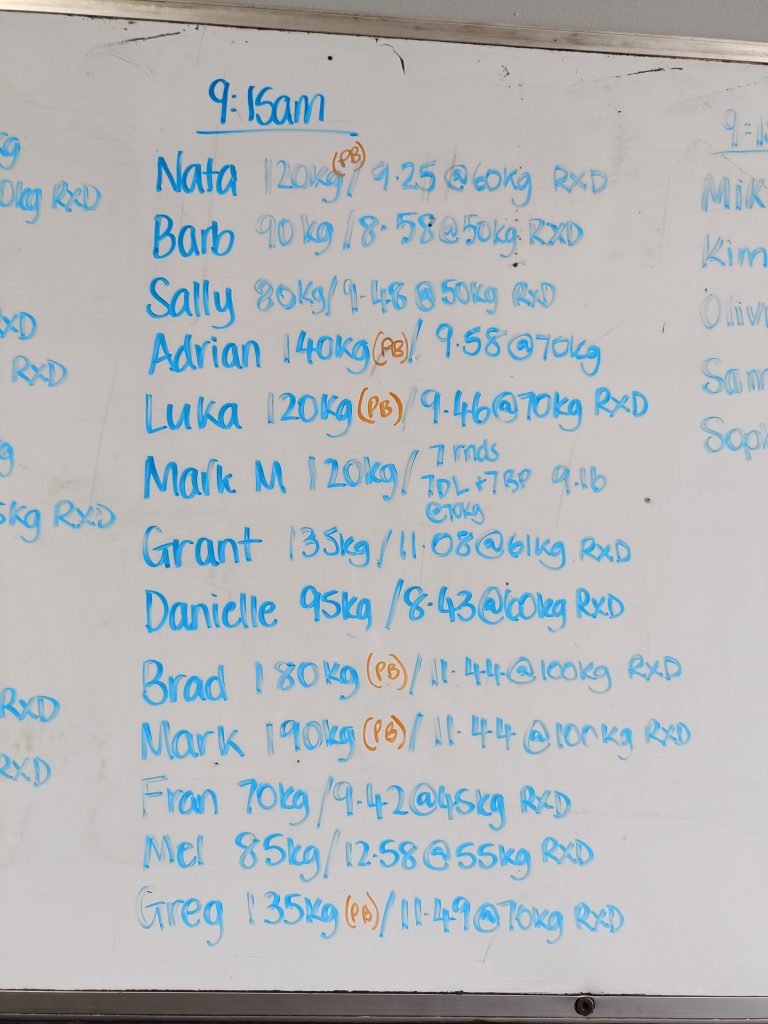 9:15am
Nata 120kg (PB) / 9.25 @60kg RXD
Barb 90kg / 8.58@50kg RXD
Sally 80kg / 9.48 @50kg RXD
Adrian 140kg (PB) / 9.58@70kg
Luka 120kg (PB) / 9.46@70kg RXD
Mark M 120kg / 7 rnds
7DL + 7BP 9.16
@70kg
Grant 135kg / 11.08@61kg RXD
Danielle 95kg / 8.43@60kg RXD
Brad 180kg (PB) / 11.44@100kg RXD
Mark 190kg (PB) / 11.44 @100kg RXD
Fran 70kg / 9.42@45kg RXD
Mel 85kg / 12.58@55kg RXD
Greg 135kg (PB) / 11.49@70kg RXD
0kg RXD
RXD
5kg RXD
RXD
RXD
Kim
Sam